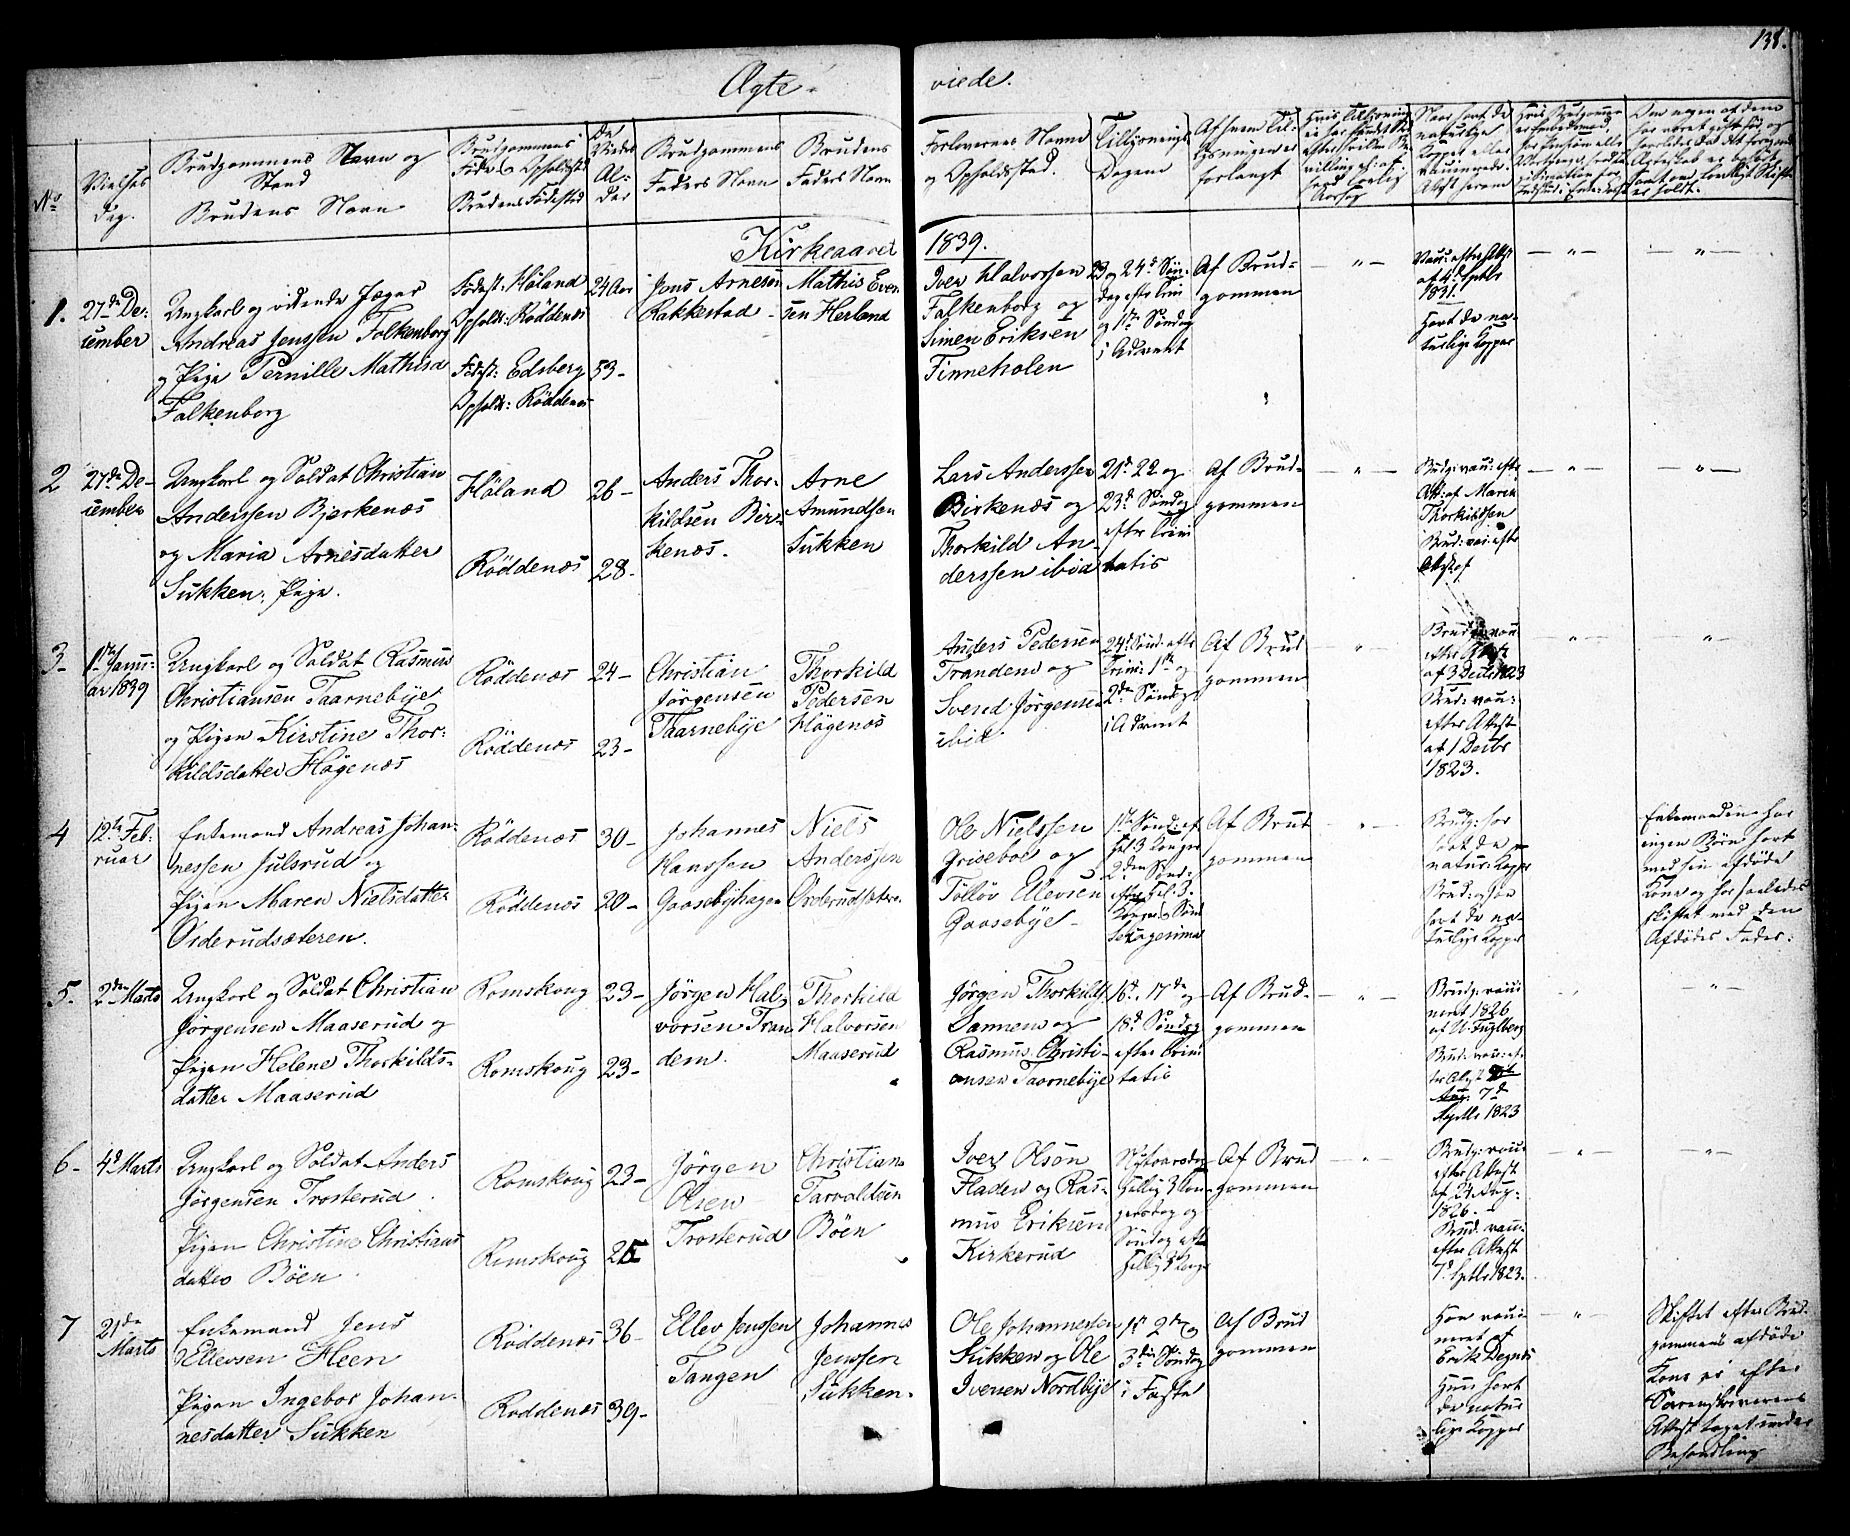 138.
Ægte viede.
No
Vielses Dag.
Brudgommens Navn og
Stand
Brudens Navn
Brudgommens
Føde og Opholdssted
Brudens Fødested
De Viedes Alder
Brudgommens
Faders Navn
Brudens
Faders Navn
Forlovernes Navne
og Opholdssted.
Tillysnings
Dagene
Af hvem Til-
lysningen er
forlangt
Kirkeaaret 1839.
1.
27de De-
cember
Ungkarl og vidende Jæger
Andreas Jenssen Falkenborg
og Pige Pernille Mathisd
Falkenborg
Fødest: Høland
Opholds: Röddenæs
Fødest: Edsberg
Opholds: Röddenæs
24 Aar
53-
Jens Arnesen
Rakkestad
Mathis Even-
sen Herland
Iver Halvorsen
Falkenborg og
Simen Eriksen
Finneholen
23 og 24de Søn-
dag efter Trini
og 1ste Søndag
i Advent
Af Brud-
gommen
- " -
Vacc: efter Attest
af 4de Septbr
1831.
Havt de na-
turlige Kopper
- " -
- " -
2
27de De-
cember
Ungkarl og Soldat Christian
Anderssen Bjerkenæs
og Maria Arnesdatter
Sukken: Pige.
Höland
Röddenæs
26-
28-
Anders Thor-
kildsen Bir-
kenæs.
Arne
Amundsen
Sukken
Lars Anderssen
Birkenæs og
Thorkild An-
derssen ibid
21de 22 og
23de Søndag
efter Trini
tatis
Af Brud-
gommen
- " -
Brudg: vacc: efter
Att: af Maren
Thorkildsen
Brud: vac: efter
Attest af
- " -
- " -
3-
1ste Janu-
ar 1839
Ungkarl og Soldat Rasmus
Christiansen Taarnebÿe
og Pigen Kirstine Thor-
kildsdatter Högenæs
Röddenæs
Röddenæs
24-
23-
Christian
Jörgensen
Taarnebÿe
Thorkild
Pedersen
Högenæs
Anders Pedersen
Tranden og
Svend Jörgensen
ibid.
24de Sönd: efter
Trini: 1ste og
2den Söndag
i Advent
Af Brud
gommen
- " -
Brudg: vacc:
efter Attest
af 3 Decbr 1823
Brud: vacc:
efter Attest
af 1 Decbr
1823.
- " -
- " -
4
12te Feb-
ruar
Enkemand Andreas Johan-
nessen Julsrud og
Pigen Maren Nielsdatter
Oiderudsæteren.
Röddenæs
Röddenæs
30-
20-
Johannes
Hanssen
Gaasebÿhagen
Niels
Anderssen
Orderudsæteren
Ole Nielssen
Griseboe og
Tollov Ellevsen
Gaasebÿe
1ste Sönd: ef
Hel 3 Konger
2den Sönd:
efter Hel: 3
Konger, Sönd
Sexagesima
Af Brud
gommen
- " -
Brudg: har
havt de
natur: Kopper
Brud: har
havt de na-
turlige Kopper
Enkemanden har
ingen Börn havt
med sin afdöde
Kone og har saaledes
skiftet med den
Afdödes Fader:
5.
2den Marts
Ungkarl og Soldat Christian
Jörgensen Maaserud og
Pigen Helene Thorkilds-
datter Maaserud
Romskoug
Romskoug
23-
23-
Jörgen Hal-
vorsen Tran
dem.
Thorkild
Halvorsen
Maaserud
Jörgen Thorkilds
Sannem og
Rasmus Christi-
ansen Taarnebÿe
16de, 17de og
18de Söndag
efter Trini
tatis
Af Brud-
gommen
- " -
Brudg: vacci
neret 1826
af U: Fuglberg
Brud: vac: ef-
ter Attest
Aug: 7de
Septbr 1823
- " -
6-
4de Marts
Ungkarl og Soldat Anders
Jörgensen Trosterud
Pigen Christine Christians
datter Böen
Romskoug
Romskoug
23-
25
Jörgen
Olsen
Trosterud
Christian
Tarvaldsen
Böen
Iver Olsön
Fladen og Ras-
mus Eriksen
Kirkerud
Nytaarsdag
Hellig 3 Kon-
gersdag og
Söndag efter
Hellig 3 Konger
Af Brud
gommen
- " -
Brudg: vacc:
efter Attest
af 24 Aug:
1826.
Brud: vacc:
efter Attest
7de Septbr 1823.
- " -
- " -
7
21de
Marts
Enkemand Jens
Ellevsen Heen
Pigen Ingebor Johan-
nesdatter Sukken
Röddenæs
Röddenæs
36-
39-
Ellev Jenssen
Tangen
Johannes
Jenssen
Sukken-
Ole Johannessen
Sukken og Ole
Iversen Nordbÿe
1ste 2den og
3die Söndag
i Faste
Af Brud
gommen
Han vacci
neret af
Erik Degnes
Hun havt
de natur
lige Kopper
- " -
Skiftet efter Brud-
gommens afdöde
Kone er efter
Sorenskriverens
Attest taget under
Behandling